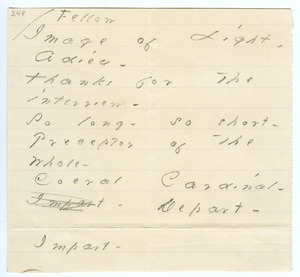 248
Fellow
Image of Light,
Adieu -
Thanks for the
interview -
So long - so short -
Preceptor of the
whole -
Coeval Cardinal -
Impart - Depart -
Impart -